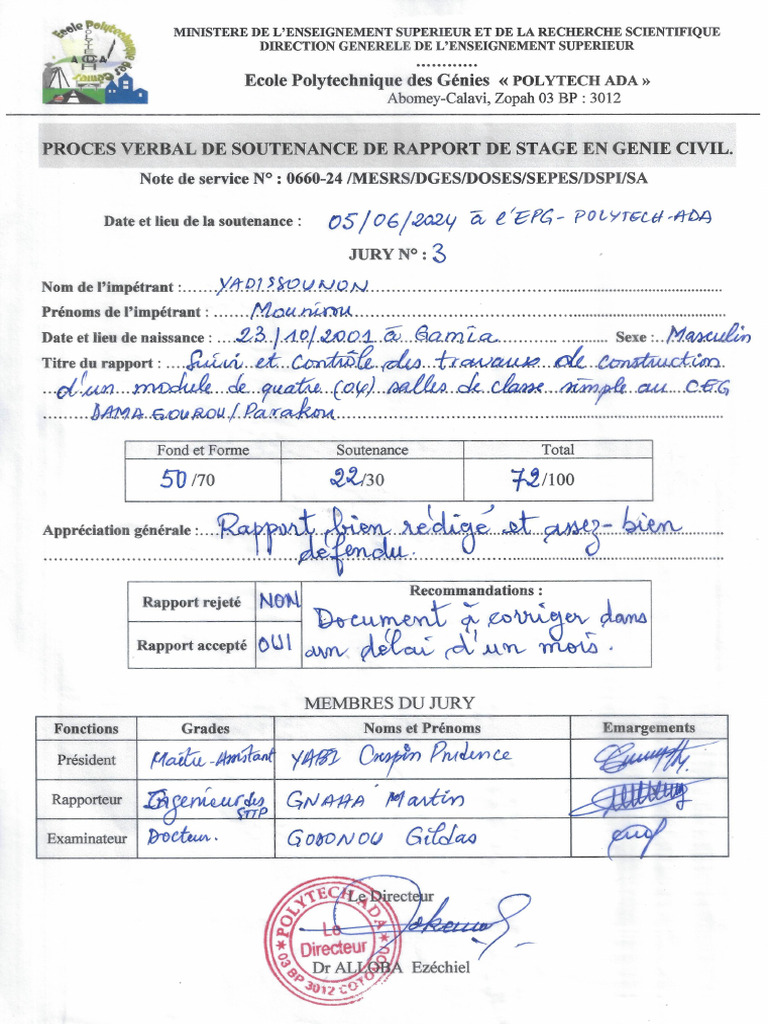 Ecole Polytechnique des Génies
POLYTECH
A D A
MINISTERE DE L'ENSEIGNEMENT SUPERIEUR ET DE LA RECHERCHE SCIENTIFIQUE
DIRECTION GENERELE DE L'ENSEIGNEMENT SUPERIEUR
............
Ecole Polytechnique des Génies « POLYTECH ADA »
Abomey-Calavi, Zopah 03 BP : 3012
PROCES VERBAL DE SOUTENANCE DE RAPPORT DE STAGE EN GENIE CIVIL.
Note de service N° : 0660-24 /MESRS/DGES/DOSES/SEPES/DSPI/SA
Date et lieu de la soutenance : 05/06/2024 à l'EPG-POLYTECH-ADA
JURY N° : 3
Nom de l'impétrant : YADISSOUNON
Prénoms de l'impétrant : Mounirou
Date et lieu de naissance : 23/10/2001 à Gamia Sexe : Masculin
Titre du rapport : Suivi et contrôle des travaux de construction
d'un module de quatre (04) salles de classe simple au CEG
DAMAGOUROU/Parakou
Fond et Forme Soutenance Total
50 /70 22/30 72/100
Appréciation générale : Rapport bien rédigé et assez-bien
défendu.
Rapport rejeté NON Recommandations :
Rapport accepté OUI Document à corriger dans
un délai d'un mois.
MEMBRES DU JURY
Fonctions Grades Noms et Prénoms Emargements
Président Maître-Assistant YABI Crespin Prudence
Rapporteur Ingenieur des STTP GNAHA Martin
Examinateur Docteur. GODONOU Gildas
Le Directeur
POLYTECH ADA
Le
Directeur
03 BP 3012 COTONOU
Dr ALLOBA Ezéchiel